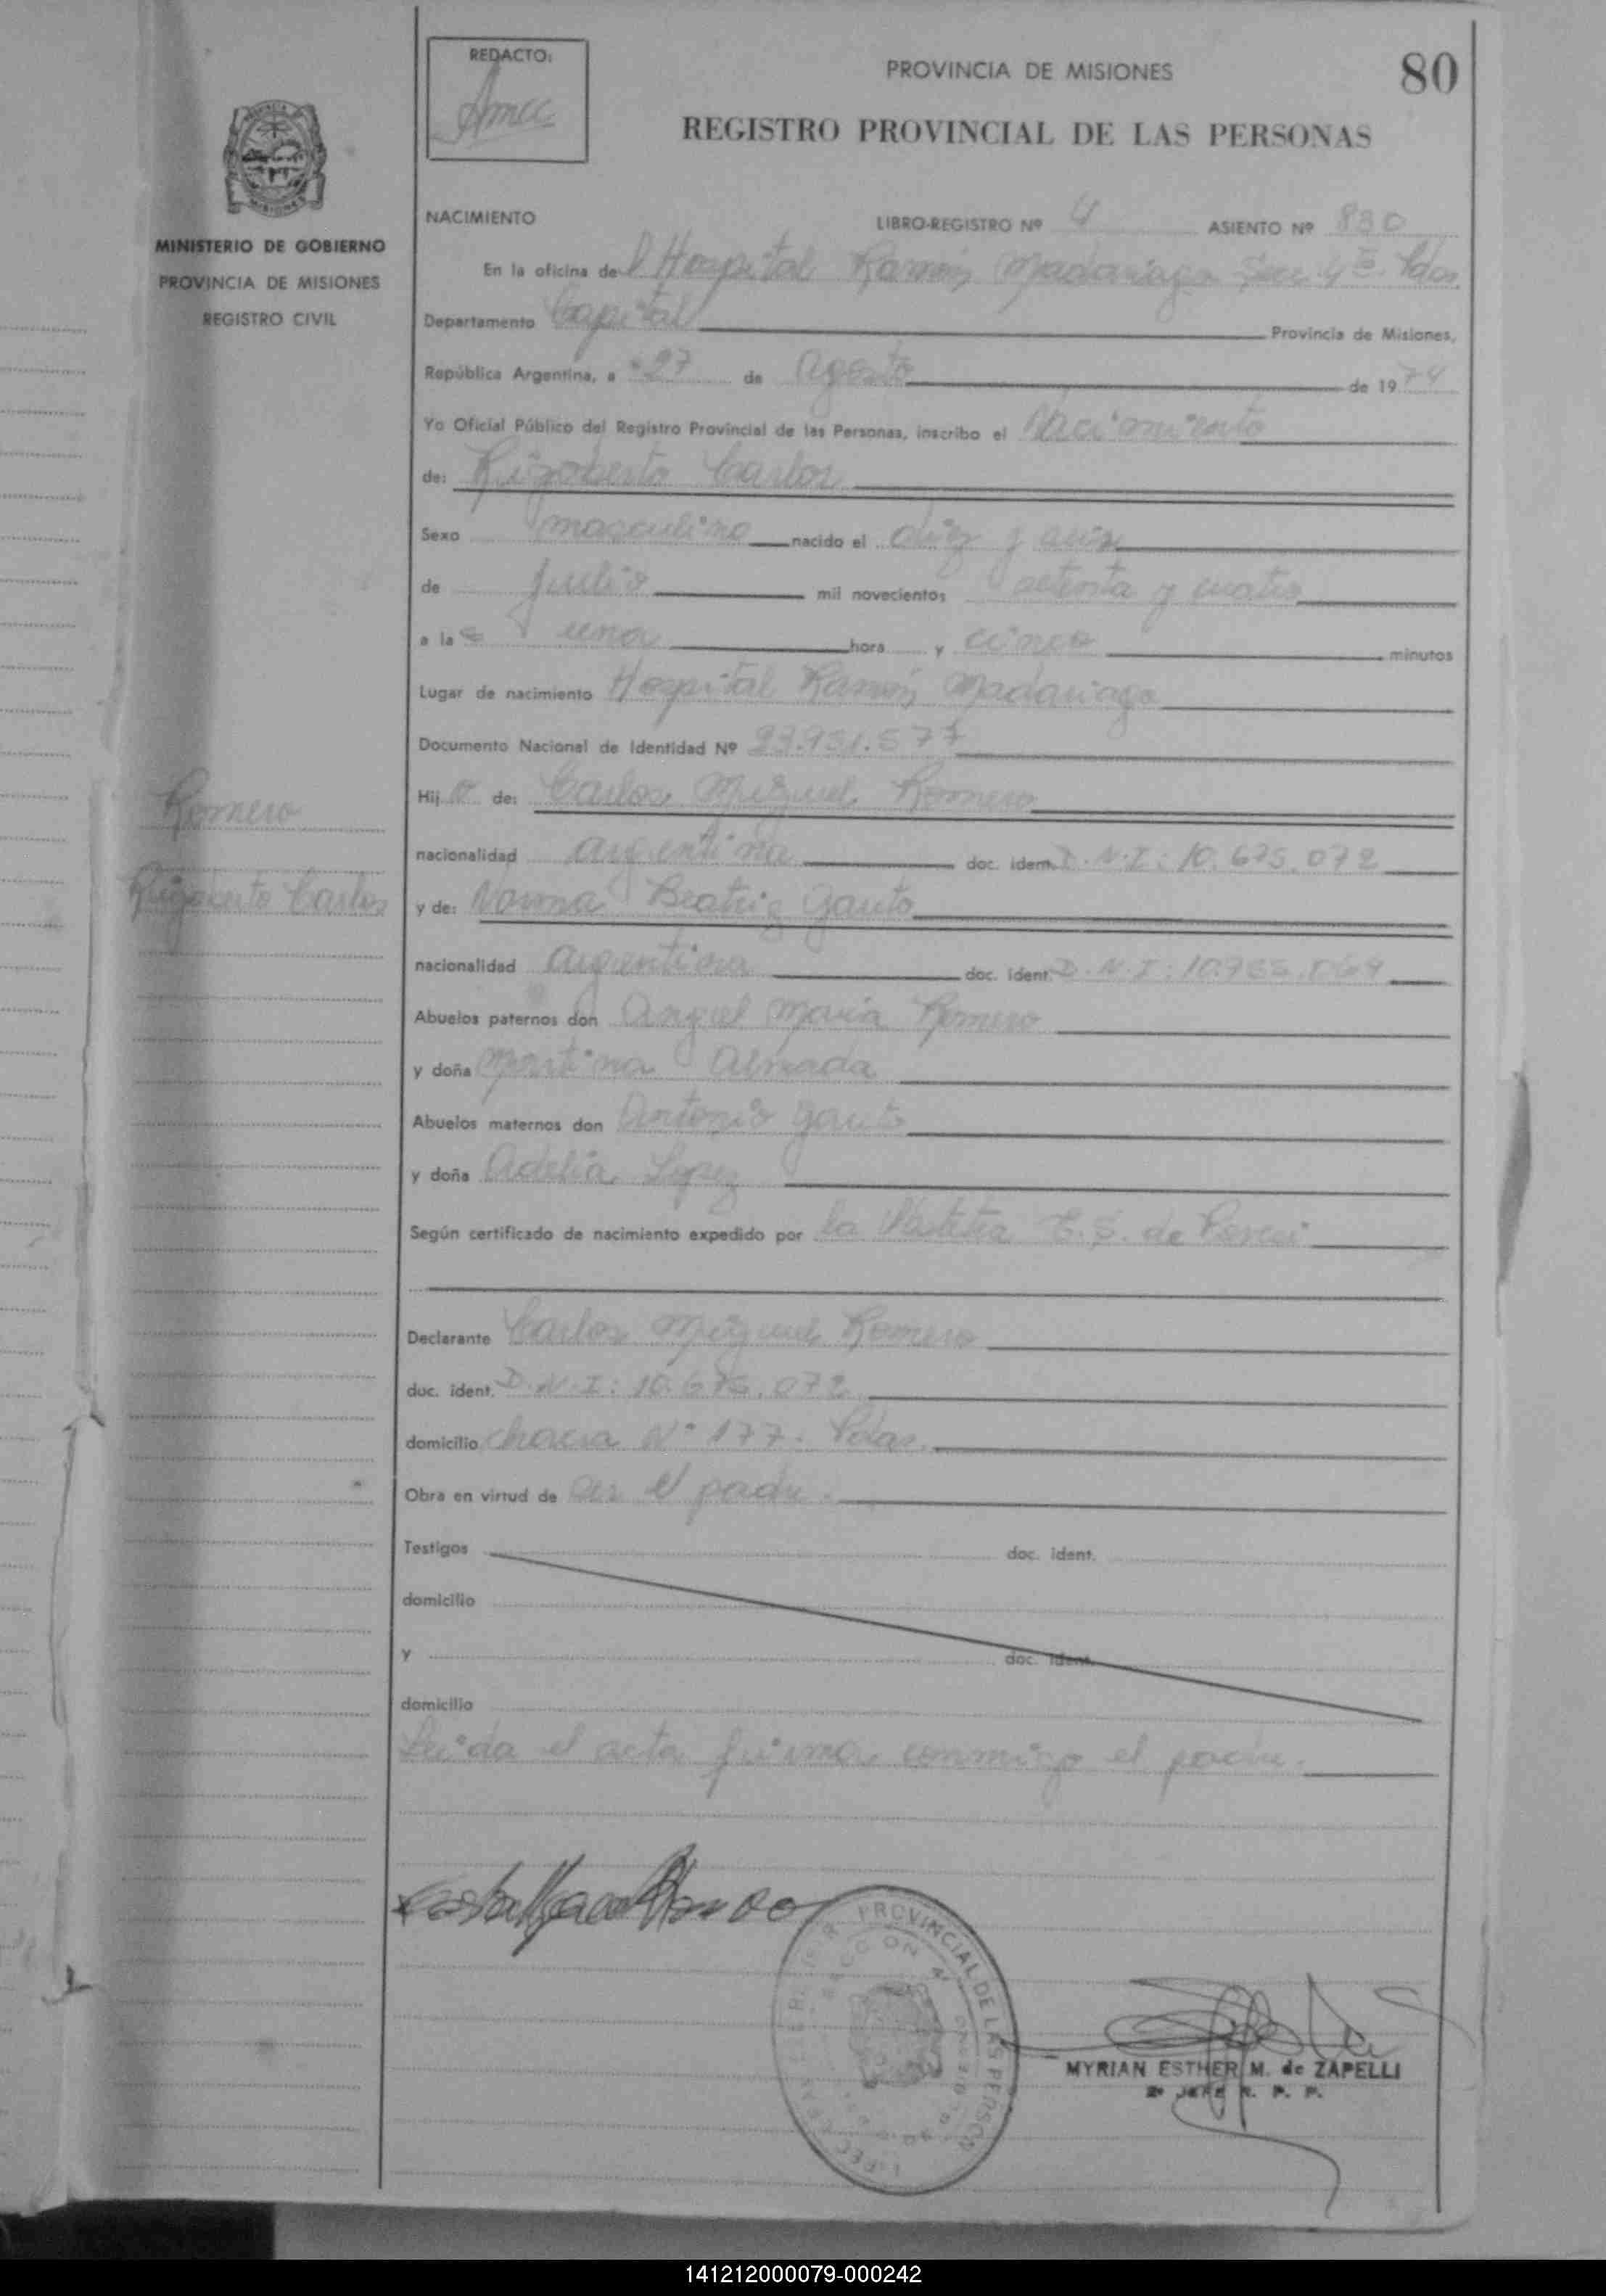 REDACTO:
PROVINCIA DE MISIONES
80
REGISTRO PROVINCIAL DE LAS PERSONAS
MINISTERIO DE GOBIERNO
PROVINCIA DE MISIONES
REGISTRO CIVIL
NACIMIENTO LIBRO-REGISTRO Nº 4 ASIENTO Nº 830
En la oficina de l Hospital Ramón Madariaga Sec 4ta Pdas
Departamento Capital Provincia de Misiones,
República Argentina, a 27 de Agosto de 1974
Yo Oficial Público del Registro Provincial de las Personas, inscribo el Nacimiento
de: Rigoberto Carlos
Sexo masculino nacido el diez y seis
de Julio mil novecientos setenta y cuatro
a las una hora y cinco minutos
Lugar de nacimiento Hospital Ramón Madariaga
Documento Nacional de Identidad Nº 23.931.577
Hijo de: Carlos Miguel Romero
Romero
nacionalidad argentina doc. iden. D.N.I: 10.675.072
Rigoberto Carlos
y de: Norma Beatriz Gauto
nacionalidad argentina doc. ident. D.N.I:
Abuelos paternos don Angel Maria Romero
y doña Almada
Abuelos maternos don Antonio Gauto
y doña Adelia Lopez
Según certificado de nacimiento expedido por la E.S. de
Declarante Carlos Miguel Romero
doc. ident. D.N.I: 10.675.072
domicilio chacra Nº 177. Pdas.
Obra en virtud de ser el padre.
Testigos doc. ident.
domicilio
y doc. ident.
domicilio
Leida el acta firma conmigo el padre.
PROVINCIAL DE LAS PERSON
SECCION 4ª
MYRIAN ESTHER M. de ZAPELLI
2º JEFE R. P. P.
141212000079-000242